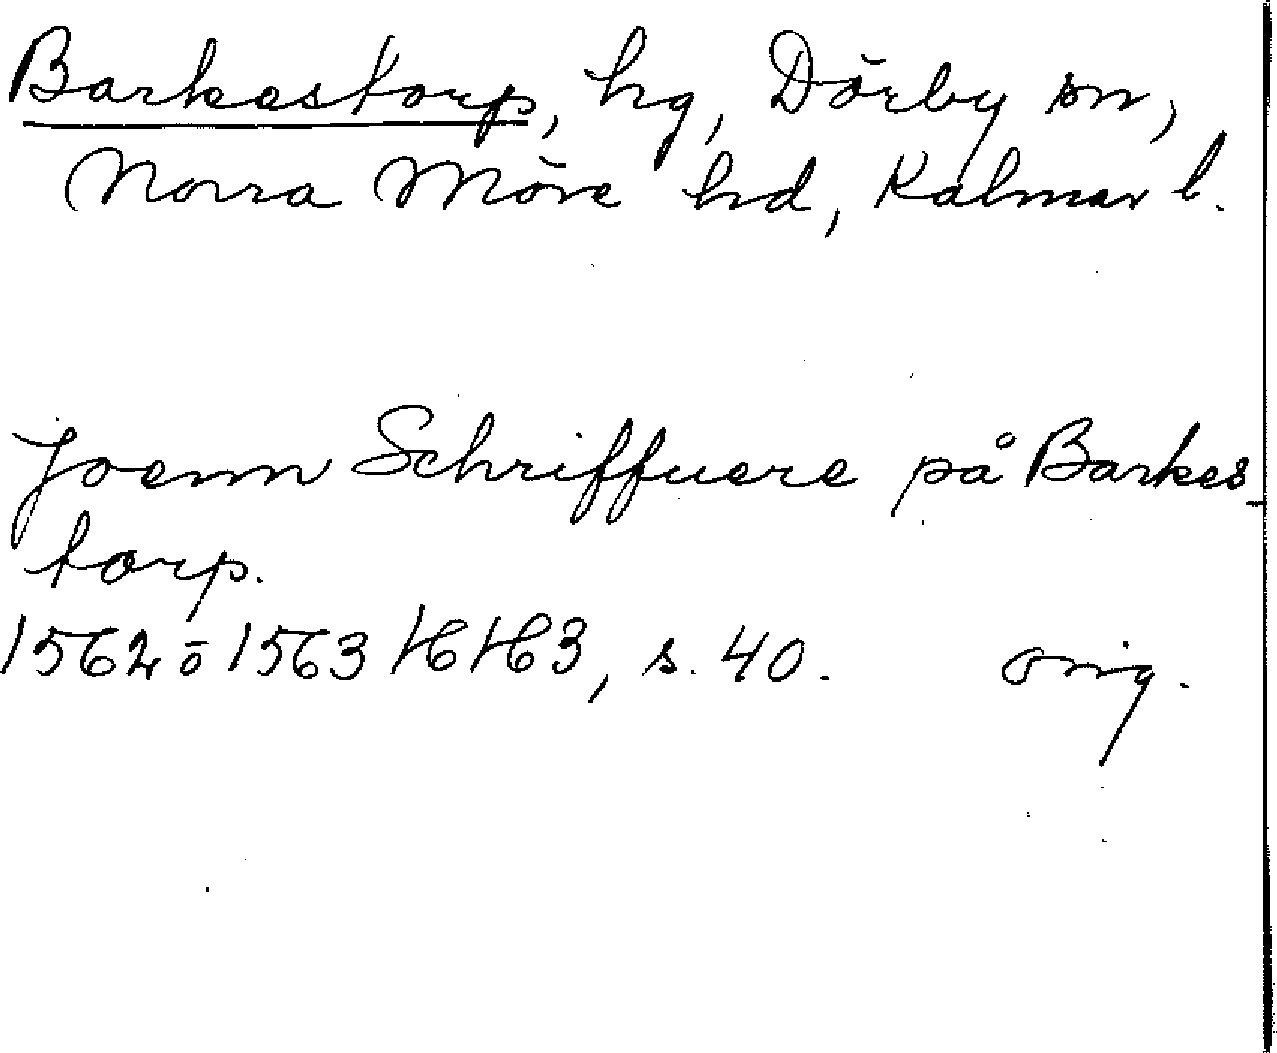 Barkestorp, hg, Dörby sn,
Norra Möre hd, Kalmar l.
Joenn Schriffuere på Barkes-
torp.
1562 ö 1563 HH3, s. 40. orig.